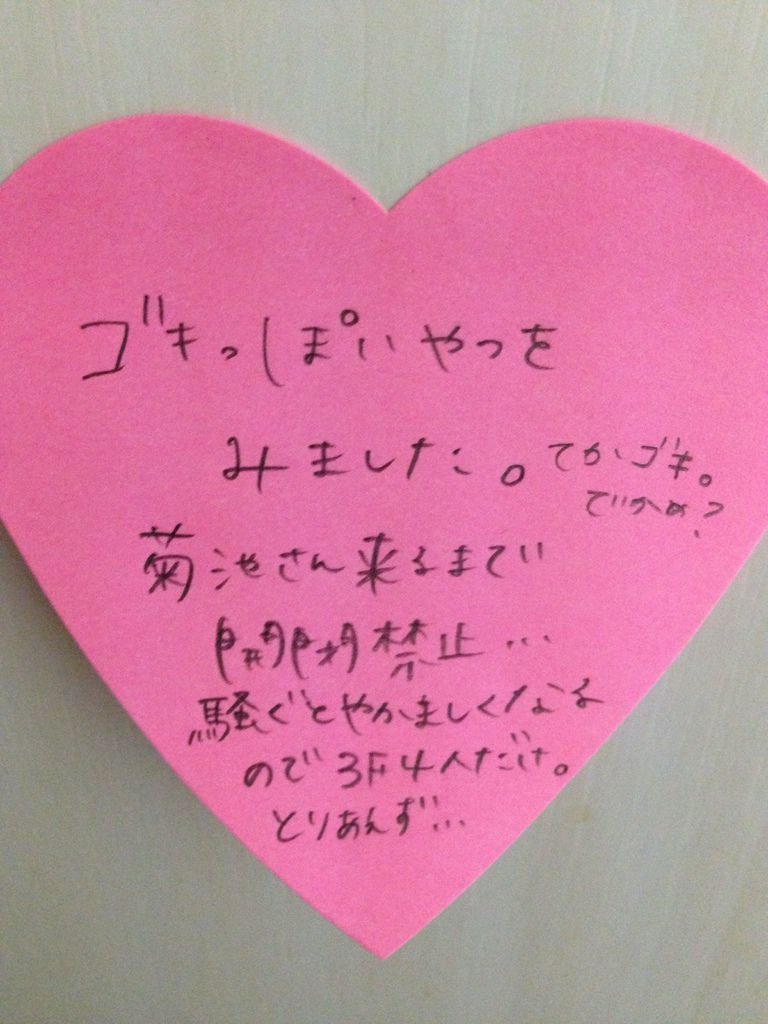 ゴキっぽいやつを
みました。てかゴキ。
でかめ?
菊池さん来るまで
開閉禁止…
騒ぐとやかましくなる
ので3F4人だけ。
とりあえず…